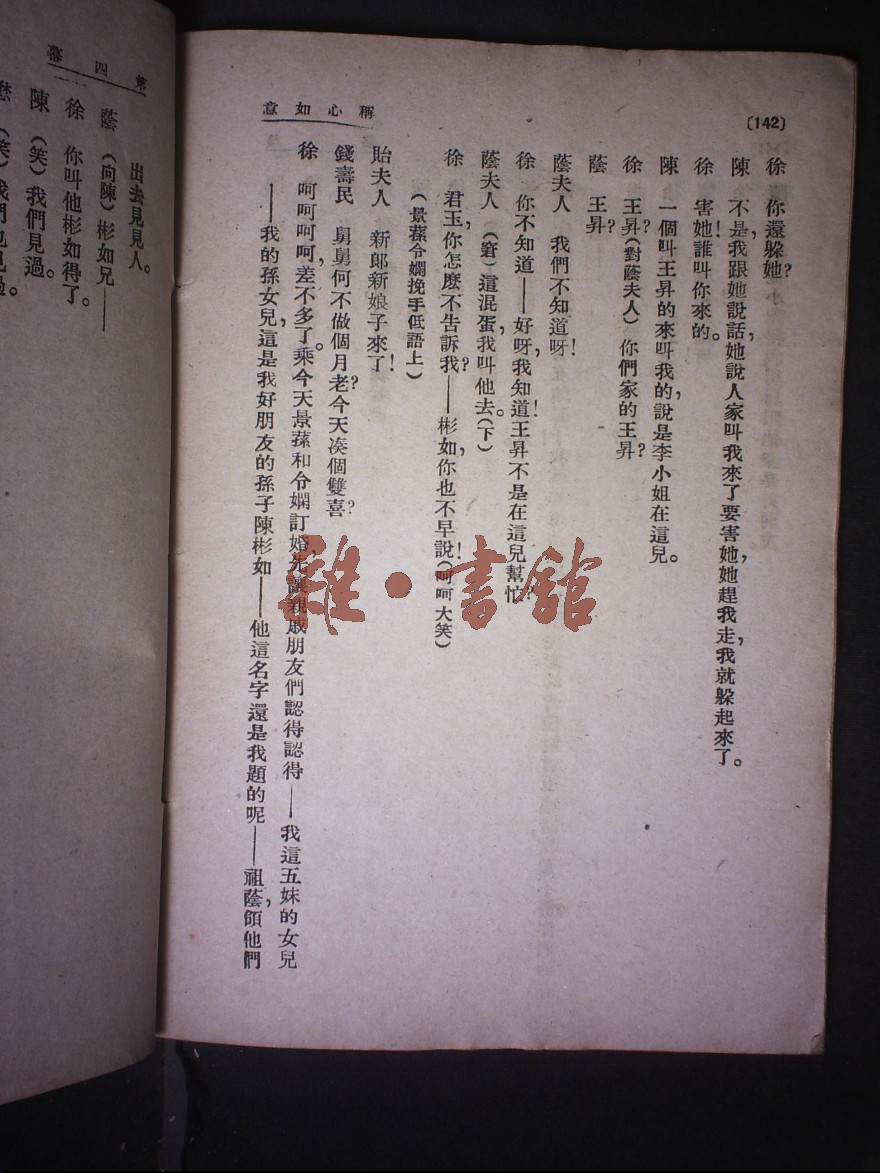 〔142〕
稱心如意
徐　你還躲她？
陳　不是，我跟她說話，她說人家叫我來了要害她，她趕我走，我就躲起來了。
徐　害她！誰叫你來的。
陳　一個叫王昇的來叫我的，說是李小姐在這兒。
徐　王昇？（對蔭夫人）你們家的王昇？
蔭　王昇？——
蔭夫人　我們不知道呀！
徐　你不知道——好呀，我知道！王昇不是在這兒幫忙？
蔭夫人　（窘）這混蛋，我叫他去。（下）
徐　君玉，你怎麼不告訴我？——彬如，你也不早說！（呵呵大笑）
（景蓀令嫻挽手低語上）
貽夫人　新郎新娘子來了！
錢壽民　舅舅何不做個月老？今天湊個雙喜？
徐　呵呵呵呵，差不多了。乘今天景蓀和令嫻訂婚，先讓親戚朋友們認得認得——我這五妹的女兒
——我的孫女兒，這是我好朋友的孫子陳彬如——他這名字還是我題的呢——祖蔭，領他們
第四幕
出去見見人。
蔭　（向陳）彬如兄——
徐　你叫他彬如得了。
陳　（笑）我們見過。
（笑）我們也見過。
雜·書館